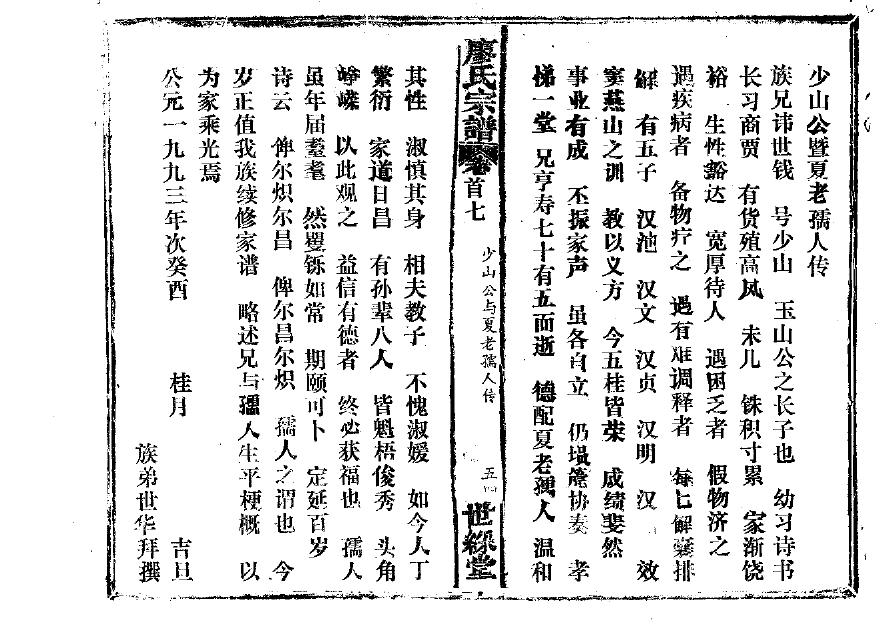 少山公暨夏老孺人传
族兄讳世钱 号少山 玉山公之长子也 幼习诗书
长习商贾 有货殖高风 未几 铢积寸累 家渐饶
裕 生性豁达 宽厚待人 遇困乏者 假物济之
遇疾病者 备物疗之 遇有难调释者 每匕解囊排
解 有五子 汉池 汉文 汉贞 汉明 汉 效
窦燕山之训 教以义方 今五桂皆荣 成绩斐然
事业有成 丕振家声 虽各自立 仍埙篪协奏 孝
悌一堂 兄享寿七十有五而逝 德配夏老孺人 温和
廖氏宗譜 卷首七 少山公与夏老孺人传 五四 世綵堂
其性 淑慎其身 相夫教子 不愧淑媛 如今人丁
繁衍 家道日昌 有孙辈八人 皆魁梧俊秀 头角
峥嵘 以此观之 益信有德者 终必获福也 孺人
虽年届耋耄 然矍铄如常 期颐可卜 定延百岁
诗云 俾尔炽尔昌 俾尔昌尔炽 孺人之谓也 今
岁正值我族续修家谱 略述兄与孺人生平梗概 以
为家乘光焉
公元一九九三年次癸酉 桂月 吉旦
族弟世华拜撰